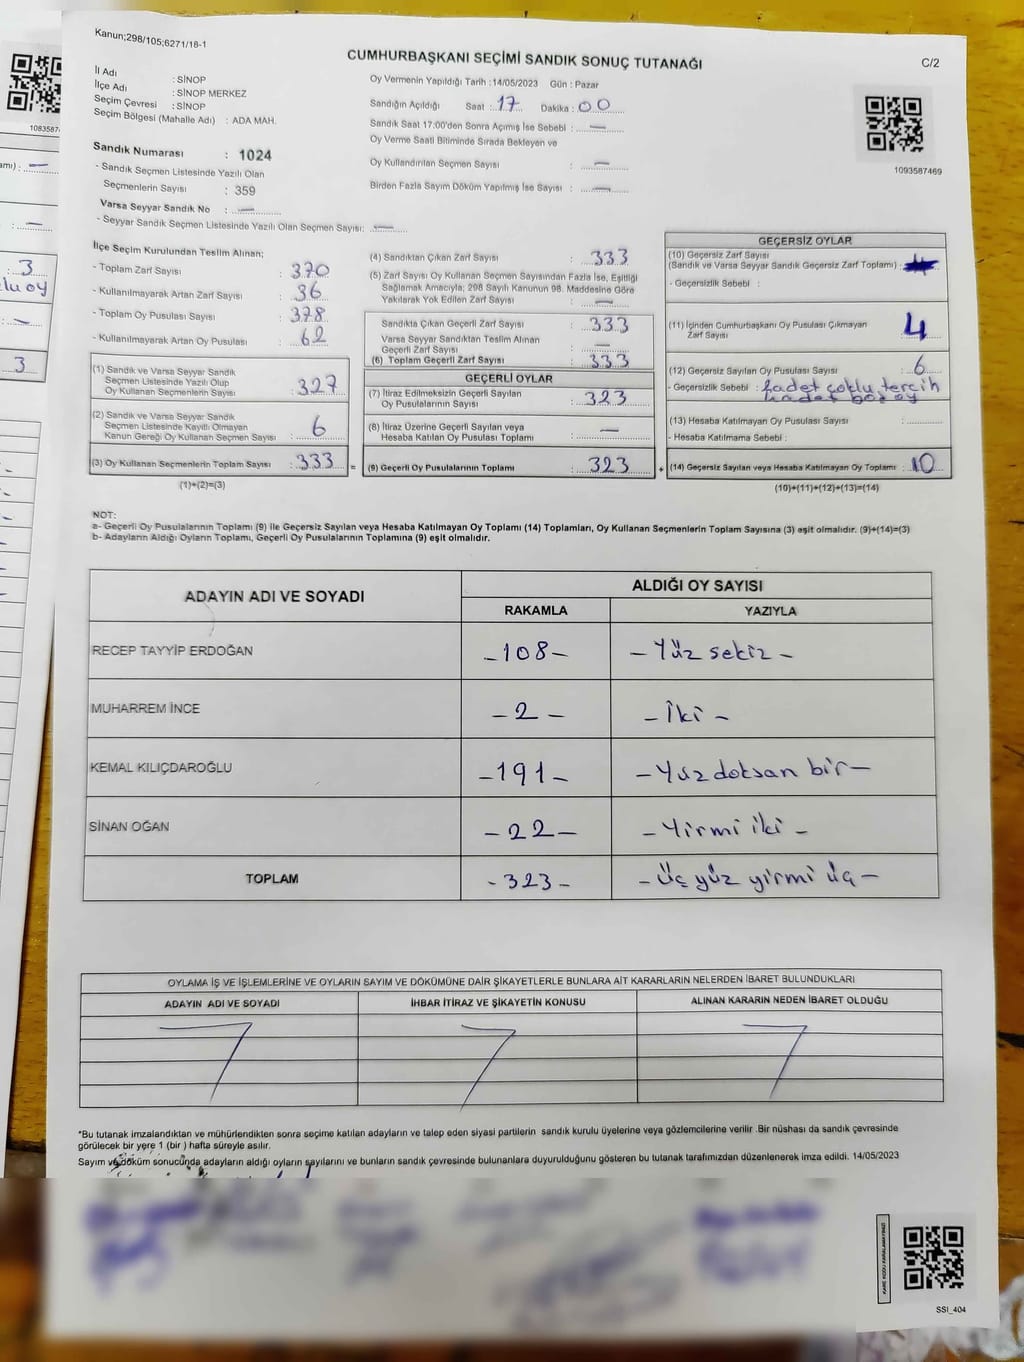 Kanun;298/105;6271/18-1
CUMHURBAŞKANI SEÇİMİ SANDIK SONUÇ TUTANAĞI
C/2
İl Adı : SİNOP
İlçe Adı : SİNOP MERKEZ
Seçim Çevresi : SİNOP
Seçim Bölgesi (Mahalle Adı) : ADA MAH.
Oy Vermenin Yapıldığı Tarih :14/05/2023 Gün : Pazar
Sandığın Açıldığı Saat : 17 Dakika : 00
Sandık Saat 17:00'den Sonra Açımış İse Sebebi : —
Oy Verme Saati Bitiminde Sırada Bekleyen ve
Oy Kullandırılan Seçmen Sayısı : —
Birden Fazla Sayım Döküm Yapılmış İse Sayısı : —
1093587469
Sandık Numarası : 1024
- Sandık Seçmen Listesinde Yazılı Olan
Seçmenlerin Sayısı : 359
Varsa Seyyar Sandık No : —
- Seyyar Sandık Seçmen Listesinde Yazılı Olan Seçmen Sayısı: —
İlçe Seçim Kurulundan Teslim Alınan;
- Toplam Zarf Sayısı : 370
- Kullanılmayarak Artan Zarf Sayısı : 36
- Toplam Oy Pusulası Sayısı : 378
- Kullanılmayarak Artan Oy Pusulası : 62
(1) Sandık ve Varsa Seyyar Sandık
Seçmen Listesinde Yazılı Olup
Oy Kullanan Seçmenlerin Sayısı : 327
(2) Sandık ve Varsa Seyyar Sandık
Seçmen Listesinde Kayıtlı Olmayan
Kanun Gereği Oy Kullanan Seçmen Sayısı : 6
(3) Oy Kullanan Seçmenlerin Toplam Sayısı : 333 =
(1)+(2)=(3)
(4) Sandıktan Çıkan Zarf Sayısı : 333
(5) Zarf Sayısı Oy Kullanan Seçmen Sayısından Fazla İse, Eşitliği
Sağlamak Amacıyla; 298 Sayılı Kanunun 98. Maddesine Göre
Yakılarak Yok Edilen Zarf Sayısı : —
Sandıkta Çıkan Geçerli Zarf Sayısı : 333
Varsa Seyyar Sandıktan Teslim Alınan
Geçerli Zarf Sayısı : —
(6) Toplam Geçerli Zarf Sayısı : 333
GEÇERLİ OYLAR
(7) İtiraz Edilmeksizin Geçerli Sayılan
Oy Pusulalarının Sayısı : 323
(8) İtiraz Üzerine Geçerli Sayılan veya
Hesaba Katılan Oy Pusulası Toplamı : —
(9) Geçerli Oy Pusulalarının Toplamı : 323 +
GEÇERSİZ OYLAR
(10) Geçersiz Zarf Sayısı
(Sandık ve Varsa Seyyar Sandık Geçersiz Zarf Toplamı) :
- Geçersizlik Sebebi :
(11) İçinden Cumhurbaşkanı Oy Pusulası Çıkmayan
Zarf Sayısı : 4
(12) Geçersiz Sayılan Oy Pusulası Sayısı : 6
- Geçersizlik Sebebi : 2 adet çoklu tercih
4 adet boş oy
(13) Hesaba Katılmayan Oy Pusulası Sayısı :
- Hesaba Katılmama Sebebi :
(14) Geçersiz Sayılan veya Hesaba Katılmayan Oy Toplamı : 10
(10)+(11)+(12)+(13)=(14)
NOT:
a- Geçerli Oy Pusulalarının Toplamı (9) ile Geçersiz Sayılan veya Hesaba Katılmayan Oy Toplamı (14) Toplamları, Oy Kullanan Seçmenlerin Toplam Sayısına (3) eşit olmalıdır. (9)+(14)=(3)
b- Adayların Aldığı Oyların Toplamı, Geçerli Oy Pusulalarının Toplamına (9) eşit olmalıdır.
ADAYIN ADI VE SOYADI
ALDIĞI OY SAYISI
RAKAMLA YAZIYLA
RECEP TAYYİP ERDOĞAN -108- - Yüz sekiz -
MUHARREM İNCE - 2 - - İki -
KEMAL KILIÇDAROĞLU -191- - Yüz doksan bir -
SİNAN OĞAN - 22 - - Yirmi iki -
TOPLAM - 323 - - Üç yüz yirmi üç -
OYLAMA İŞ VE İŞLEMLERİNE VE OYLARIN SAYIM VE DÖKÜMÜNE DAİR ŞİKAYETLERLE BUNLARA AİT KARARLARIN NELERDEN İBARET BULUNDUKLARI
ADAYIN ADI VE SOYADI İHBAR İTİRAZ VE ŞİKAYETİN KONUSU ALINAN KARARIN NEDEN İBARET OLDUĞU
*Bu tutanak imzalandıktan ve mühürlendikten sonra seçime katılan adayların ve talep eden siyasi partilerin sandık kurulu üyelerine veya gözlemcilerine verilir .Bir nüshası da sandık çevresinde
görülecek bir yere 1 (bir ) hafta süreyle asılır.
Sayım ve döküm sonucunda adayların aldığı oyların sayılarını ve bunların sandık çevresinde bulunanlara duyurulduğunu gösteren bu tutanak tarafımızdan düzenlenerek imza edildi. 14/05/2023
SSI_404